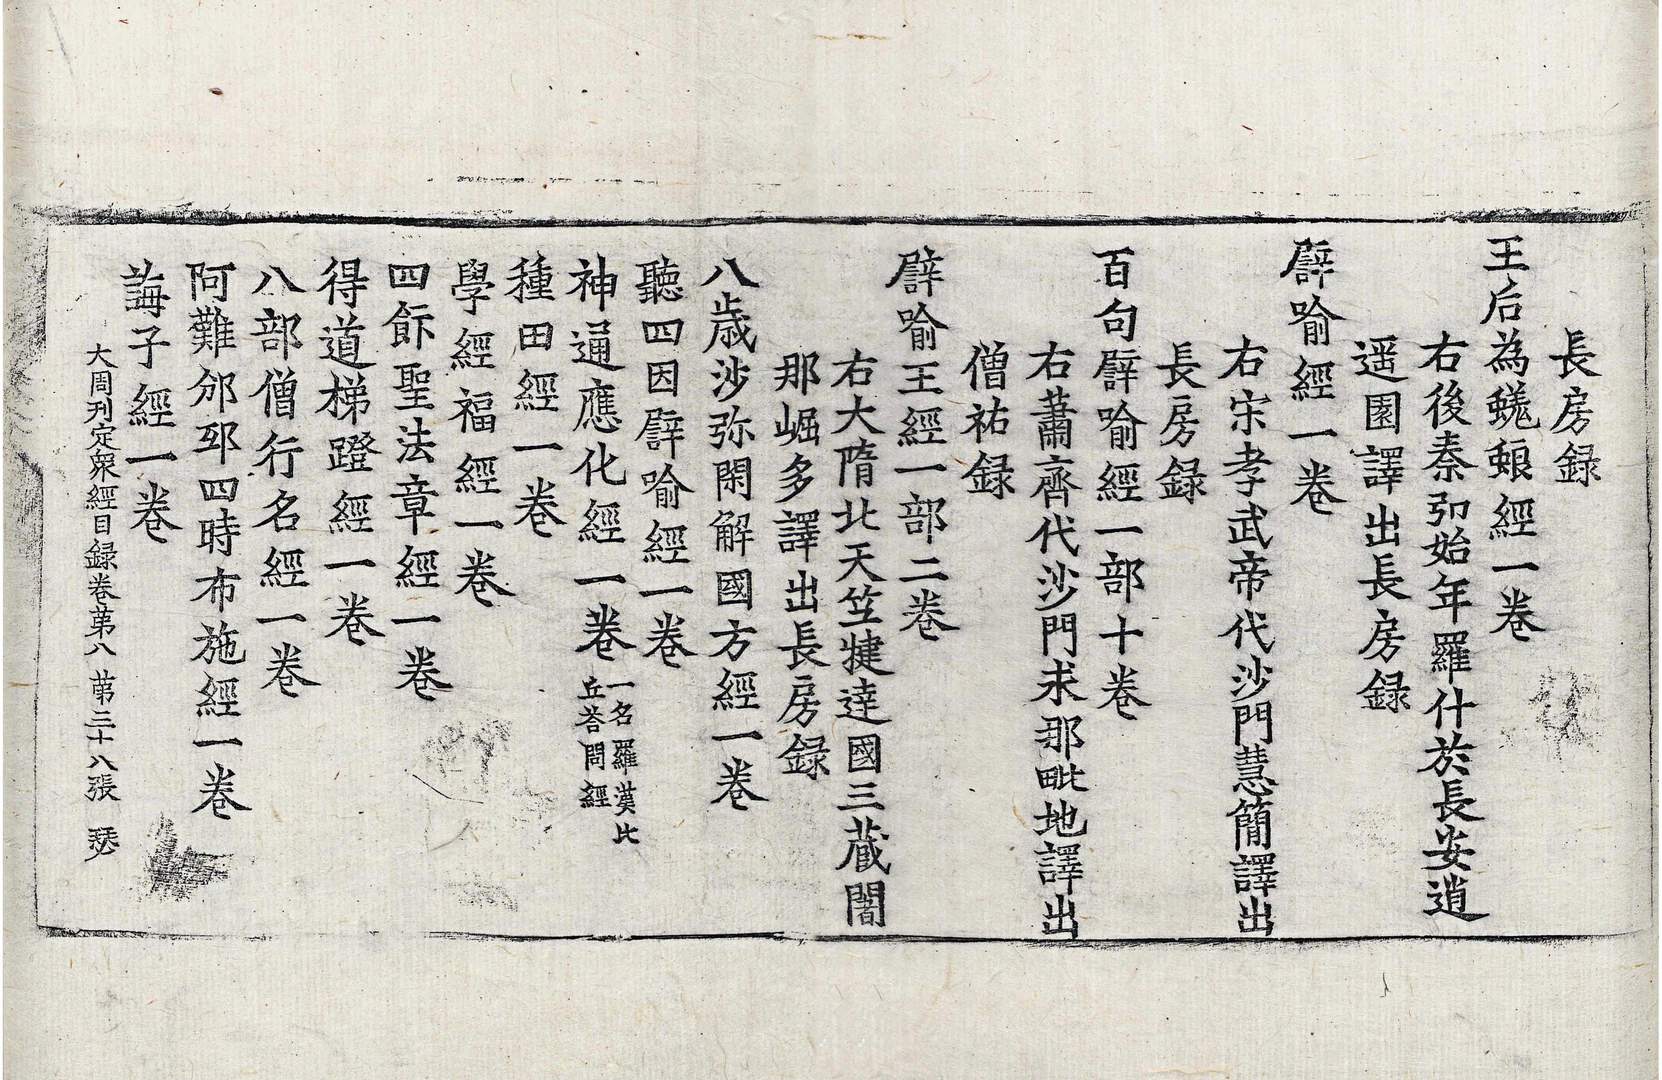 長房録
王后為蜣蜋經一卷
右後秦弘始年羅什於長安逍
遥園譯出長房録
譬喻經一卷
右宋孝武帝代沙門慧簡譯出
長房録
百句譬喻經一部十卷
右蕭齊代沙門求那毗地譯出
僧祐録
譬喻王經一部二卷
右大隋北天竺揵達國三藏闍
那崛多譯出長房録
八歳沙弥開解國方經一卷
聽四因譬喻經一卷
神通應化經一卷一名羅漢比丘荅問經
種田經一卷
學經福經一卷
四飾聖法章經一卷
得道梯蹬經一卷
八部僧行名經一卷
阿難邠邳四時布施經一卷
誨子經一卷
大周刊定衆經目録卷苐八 苐三十八張 瑟